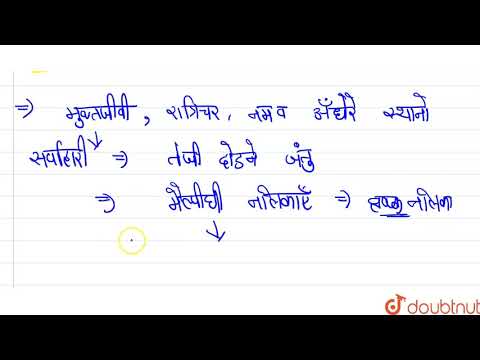 ⇒ मुक्तजीवी, रात्रिचर, नम व अँधेरे स्थानो
सर्वाहारी ⇒ तेजी दौडने जंतु
⇒ मैल्पीघी नलिकाएँ ⇒ नलिका
doubtnut